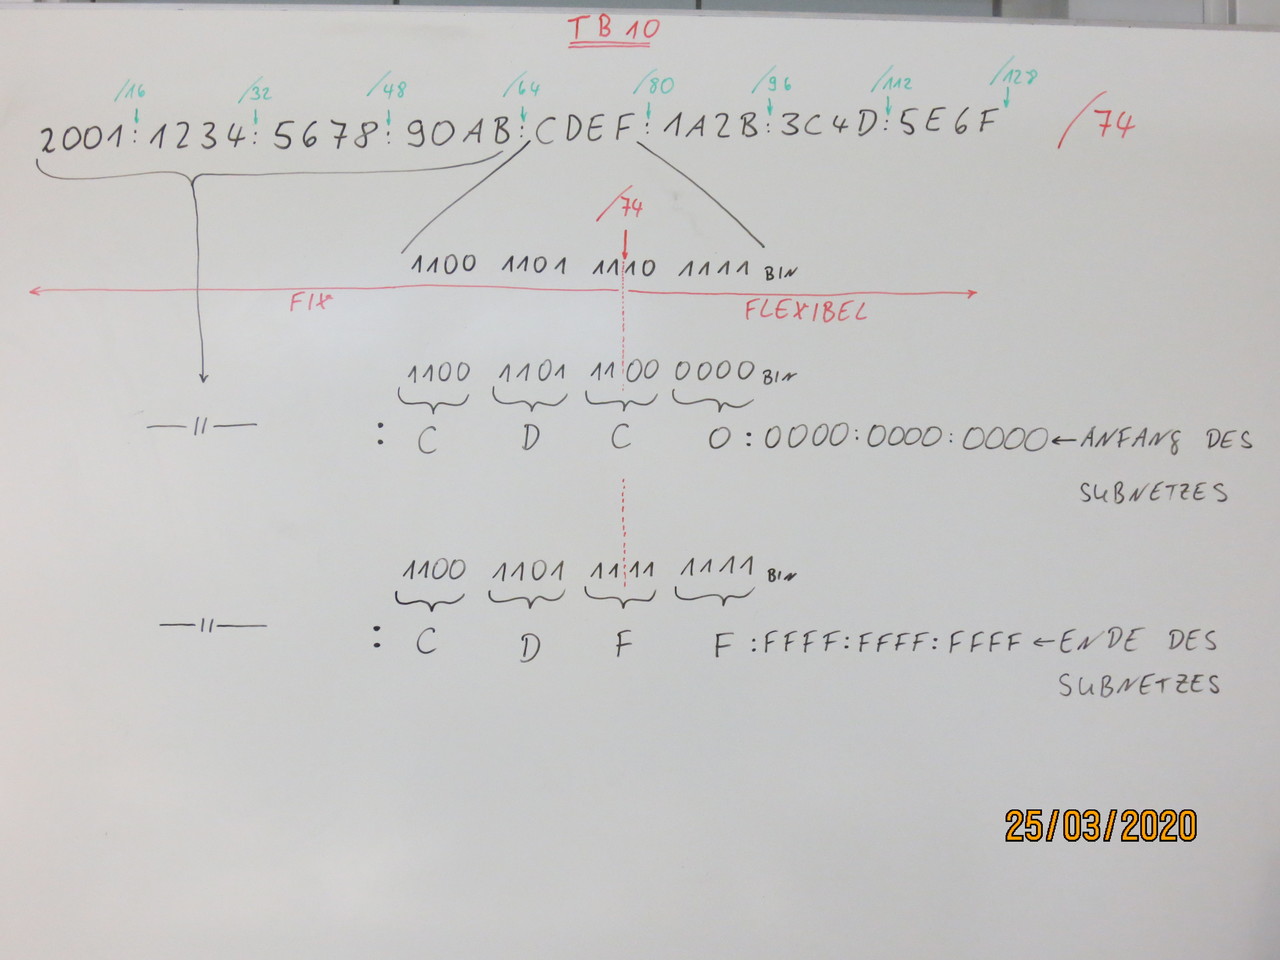 TB10
/16 /32 /48 /64 /80 /96 /112 /128
2001:1234:5678:90AB:CDEF:1A2B:3C4D:5E6F /74
/74
1100 1101 1110 1111 BIN
FIX FLEXIBEL
1100 1101 1100 0000 BIN
—//— : C D C 0:0000:0000:0000←ANFANG DES
SUBNETZES
1100 1101 1111 1111 BIN
—//— : C D F F:FFFF:FFFF:FFFF←ENDE DES
SUBNETZES
25/03/2020